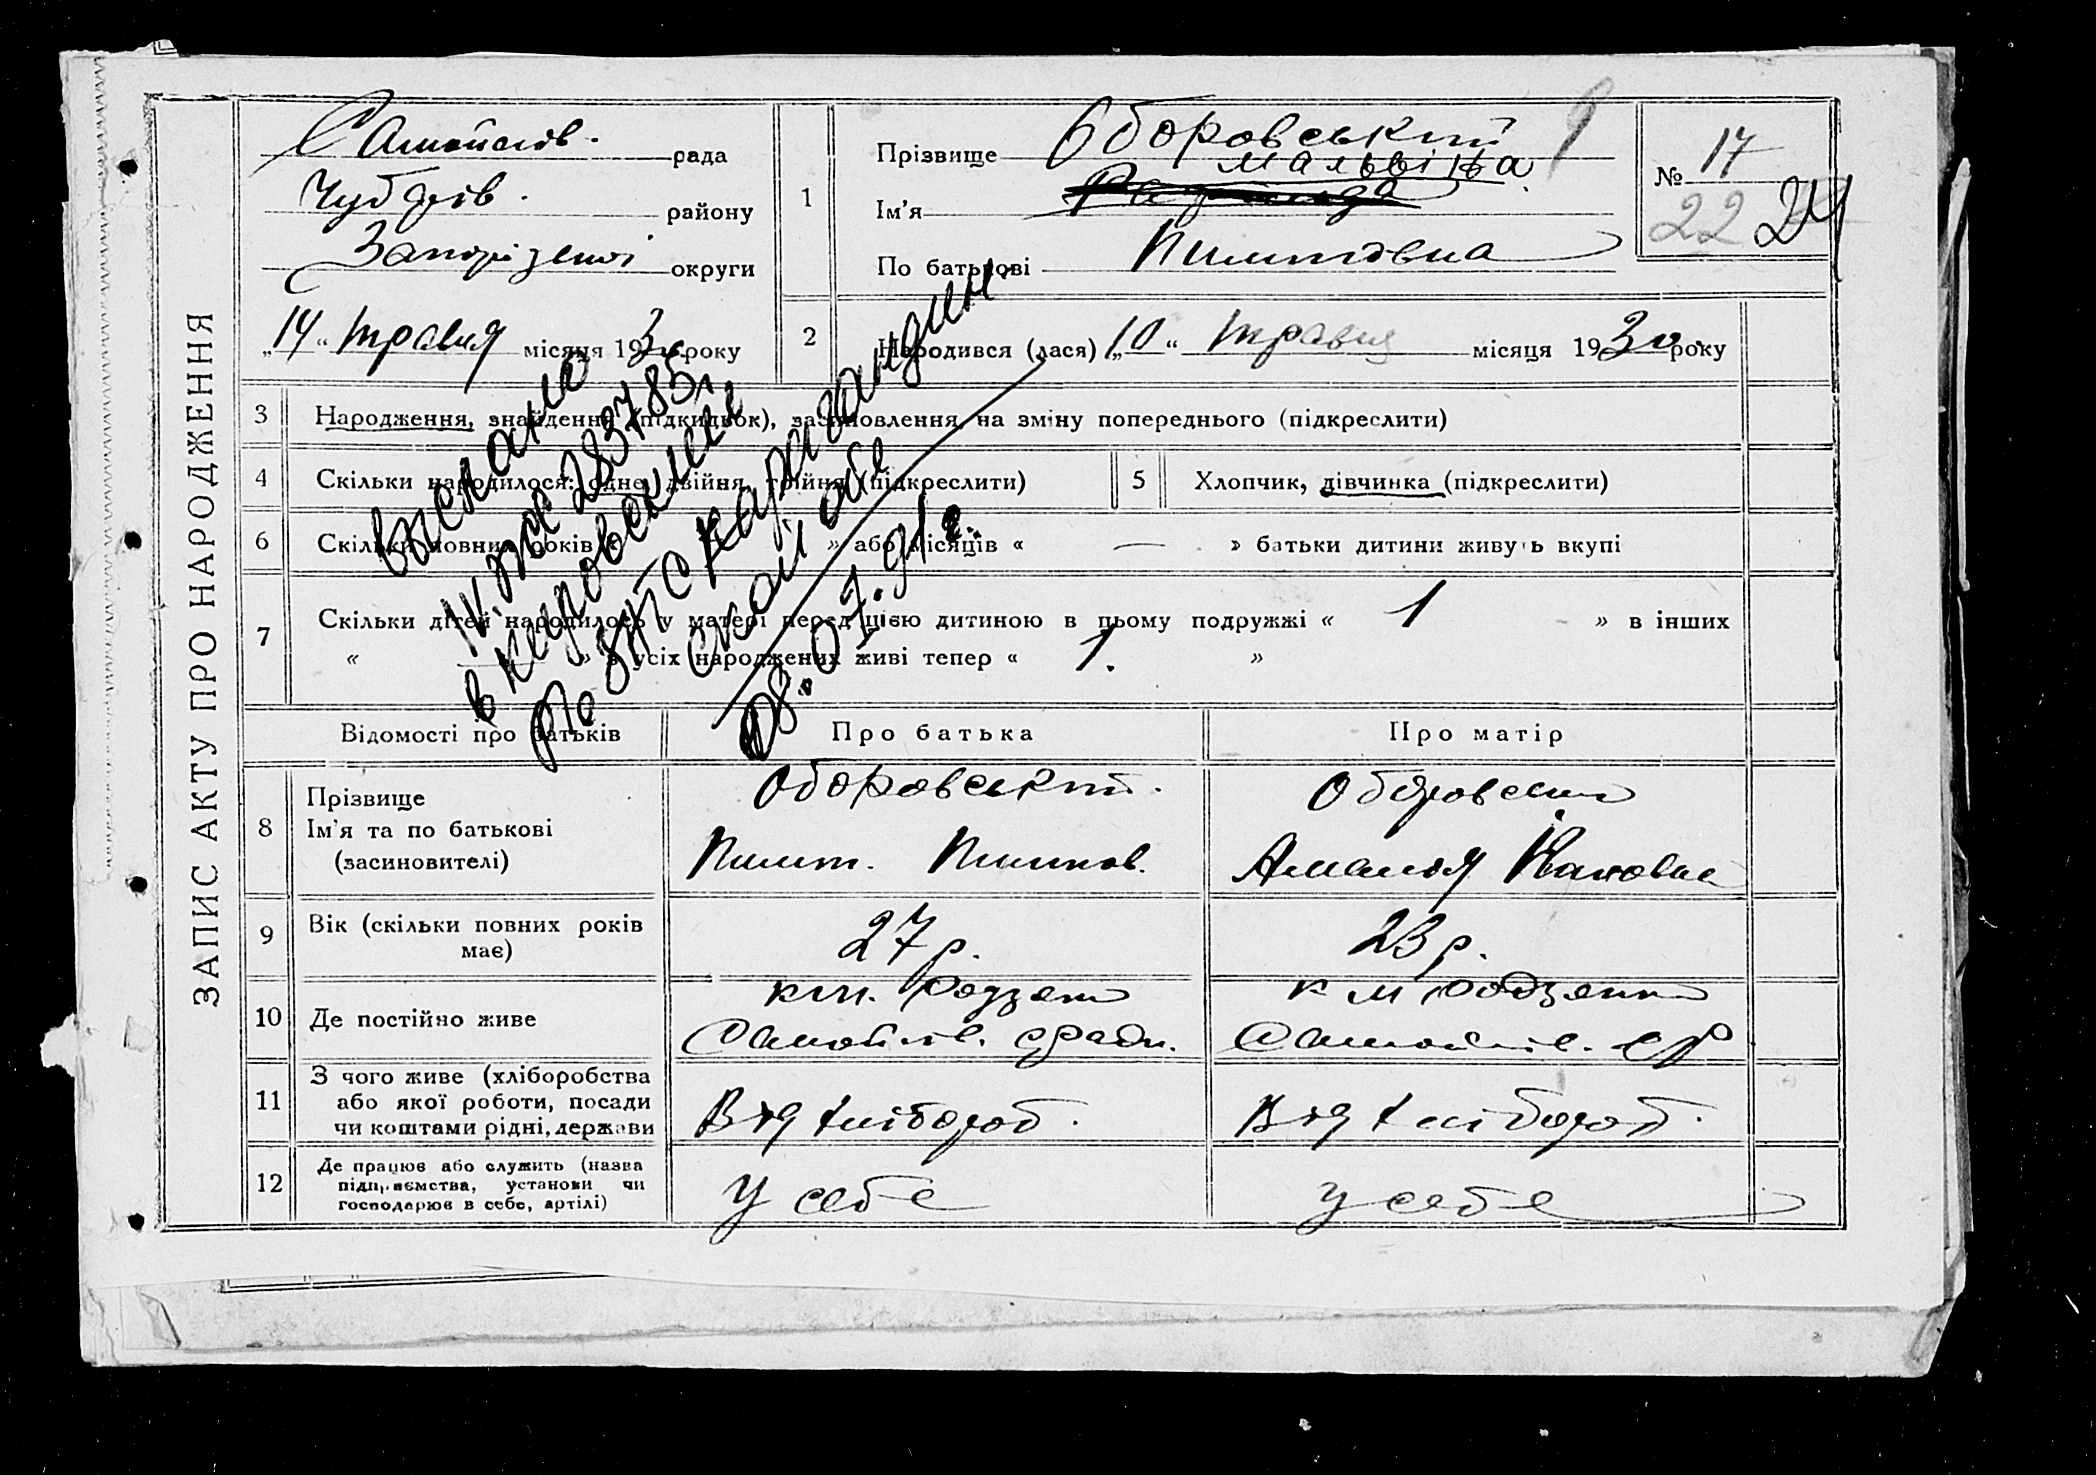 ЗАПИС АКТУ ПРО НАРОДЖЕННЯ
Самойлів. рада
Чубарів. району
Запорізької округи
„14“ травня місяця 1930 року
1
Прізвище Оборовський
Мальвіна
Ім'я
По батькові Пилипівна
№ 17
22 24
2
Народився (лася) „10“ травня місяця 1930 року
3 Народження, знайдення (підкидьок), засиновлення, на зміну попереднього (підкреслити)
4 Скільки народилося: одне, двійня, трійня (підкреслити)
5 Хлопчик, дівчинка (підкреслити)
6 Скільки повних років « » або місяців « — » батьки дитини живуть вкупі
7 Скільки дітей народилось у матері перед цією дитиною в цьому подружжі « 1 » в інших
« — » з усіх народжених живі тепер « 1. »
выслано
в Кировский
по
Карагандин
ской обл
08.07.91г.
Відомості про батьків
Про батька
Про матір
8
Прізвище
Ім'я та по батькові
(засиновителі)
Оборовський.
Пилип. Пилипов.
Оборовський
Амалія Йановна
9
Вік (скільки повних років
має)
27 р.
23 р.
10 Де постійно живе
Самойлів. с/ради.
Самойлів. с/р
11
З чого живе (хліборобства
або якої роботи, посади
чи коштами рідні, держави
Від хлібороб.
Від хлібороб.
12
Де працює або служить (назва
підприємства, установи чи
господарює в себе, артілі)
у себе
у себе